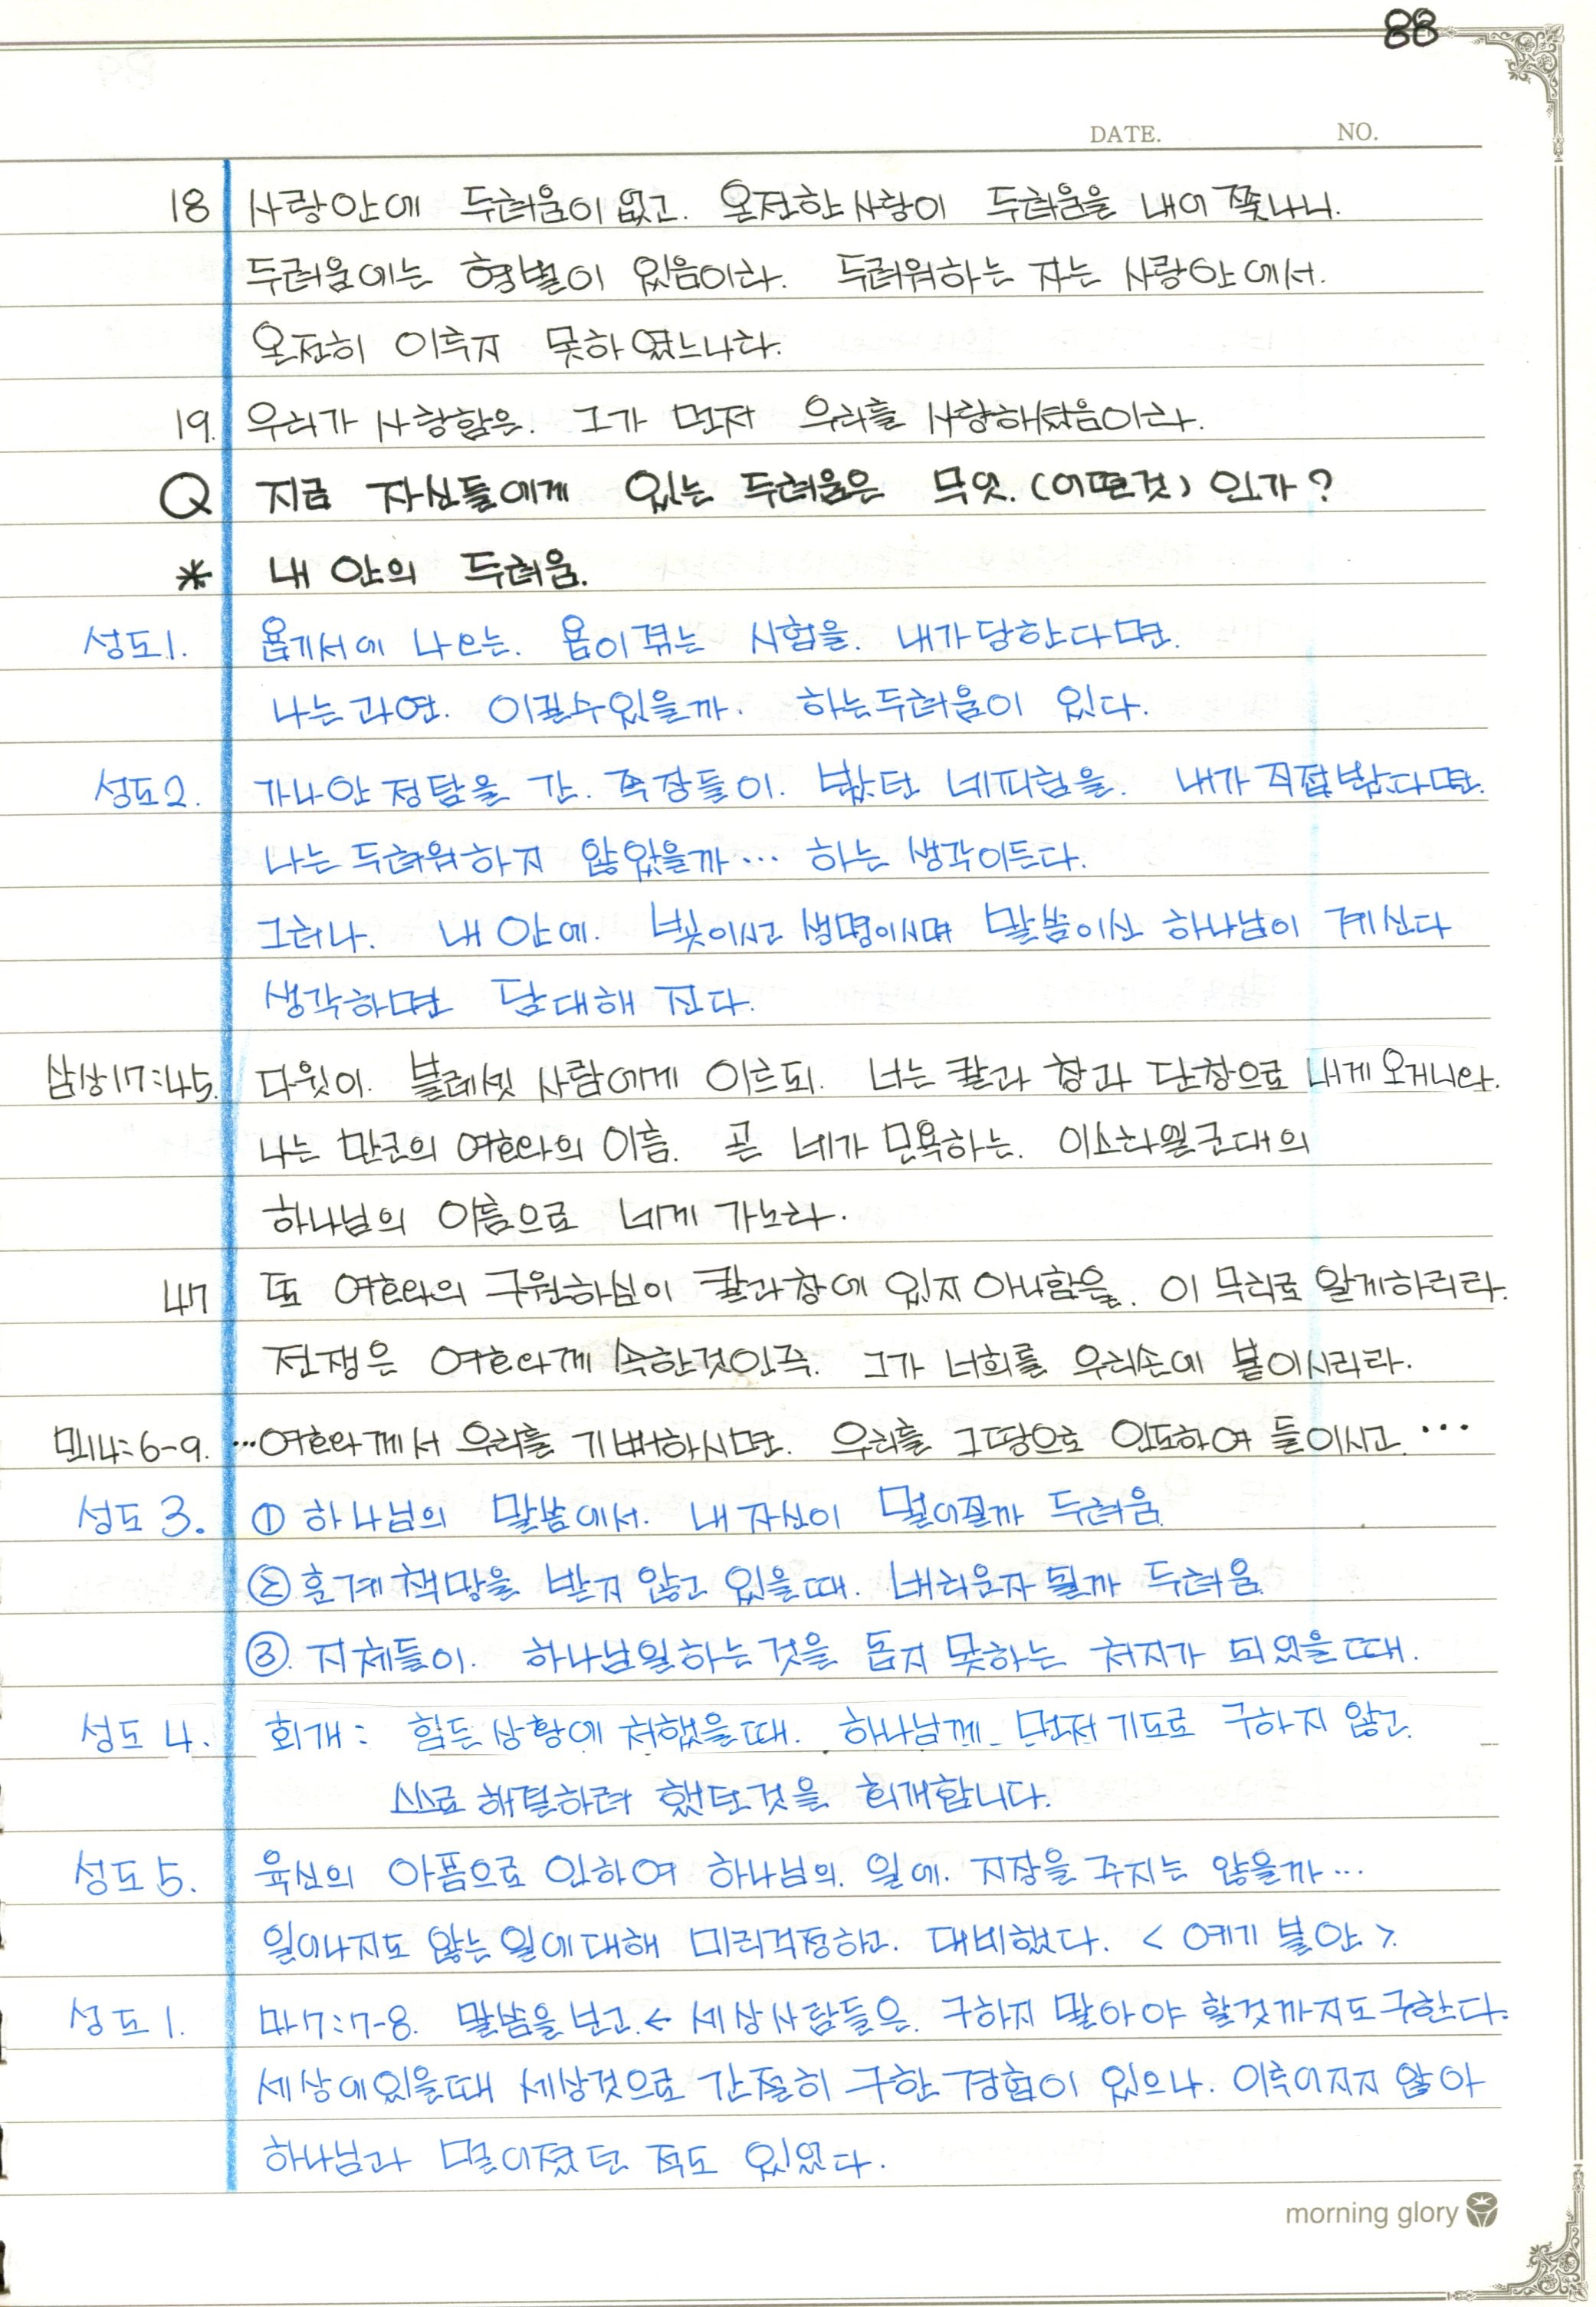 88
DATE. NO.
18 사랑안에 두려움이 없고. 온전한 사랑이 두려움을 내어 쫓나니.
두려움에는 형벌이 있음이라. 두려워하는 자는 사랑안에서.
온전히 이루지 못하였느니라.
19. 우리가 사랑함은. 그가 먼저 우리를 사랑하셨음이라.
Q 지금 자신들에게 있는 두려움은 무엇. (어떤것) 인가?
* 내 안의 두려움.
성도1. 욥기서에 나오는. 욥이 겪는 시험을. 내가 당한다면.
나는 과연. 이길수있을까. 하는 두려움이 있다.
성도2. 가나안 정탐을 간. 족장들이. 봤던 네피림을. 내가 직접 봤다면.
나는 두려워하지 않았을까··· 하는 생각이든다.
그러나. 내 안에. 빛이시고 생명이시며 말씀이신 하나님이 계신다
생각하면 담대해 진다.
삼상17:45. 다윗이. 블레셋 사람에게 이르되. 너는 칼과 창과 단창으로 내게 오거니와.
나는 만군의 여호와의 이름. 곧 네가 모욕하는. 이스라엘군대의
하나님의 이름으로 네게 가노라.
47 또 여호와의 구원하심이 칼과창에 있지 아니함을. 이 무리로 알게하리라.
전쟁은 여호와께 속한것인즉. 그가 너희를 우리손에 붙이시리라.
민14:6-9. ···여호와께서 우리를 기뻐하시면. 우리를 그땅으로 인도하여 들이시고. ···
성도 3. ① 하나님의 말씀에서. 내 자신이 멀어질까 두려움
② 훈계 책망을 받지 않고 있을때. 버려운자 될까 두려움.
③. 지체들이. 하나님일하는것을 돕지 못하는 처지가 되었을때.
성도 4. 회개: 힘든 상황에 처했을때. 하나님께 먼저 기도로 구하지 않고.
스스로 해결하려 했던것을 회개합니다.
성도 5. 육신의 아픔으로 인하여 하나님의. 일에. 지장을 주지는 않을까···
일어나지도 않는 일에대해 미리걱정하고. 대비했다. < 예기 불안 >.
성도 1. 마7:7-8. 말씀을 보고.← 세상사람들은. 구하지 말아야 할것까지도구한다.
세상에있을때 세상것으로 간절히 구한 경험이 있으나. 이루어지지 않아
하나님과 멀어졌던 적도 있었다.
morning glory